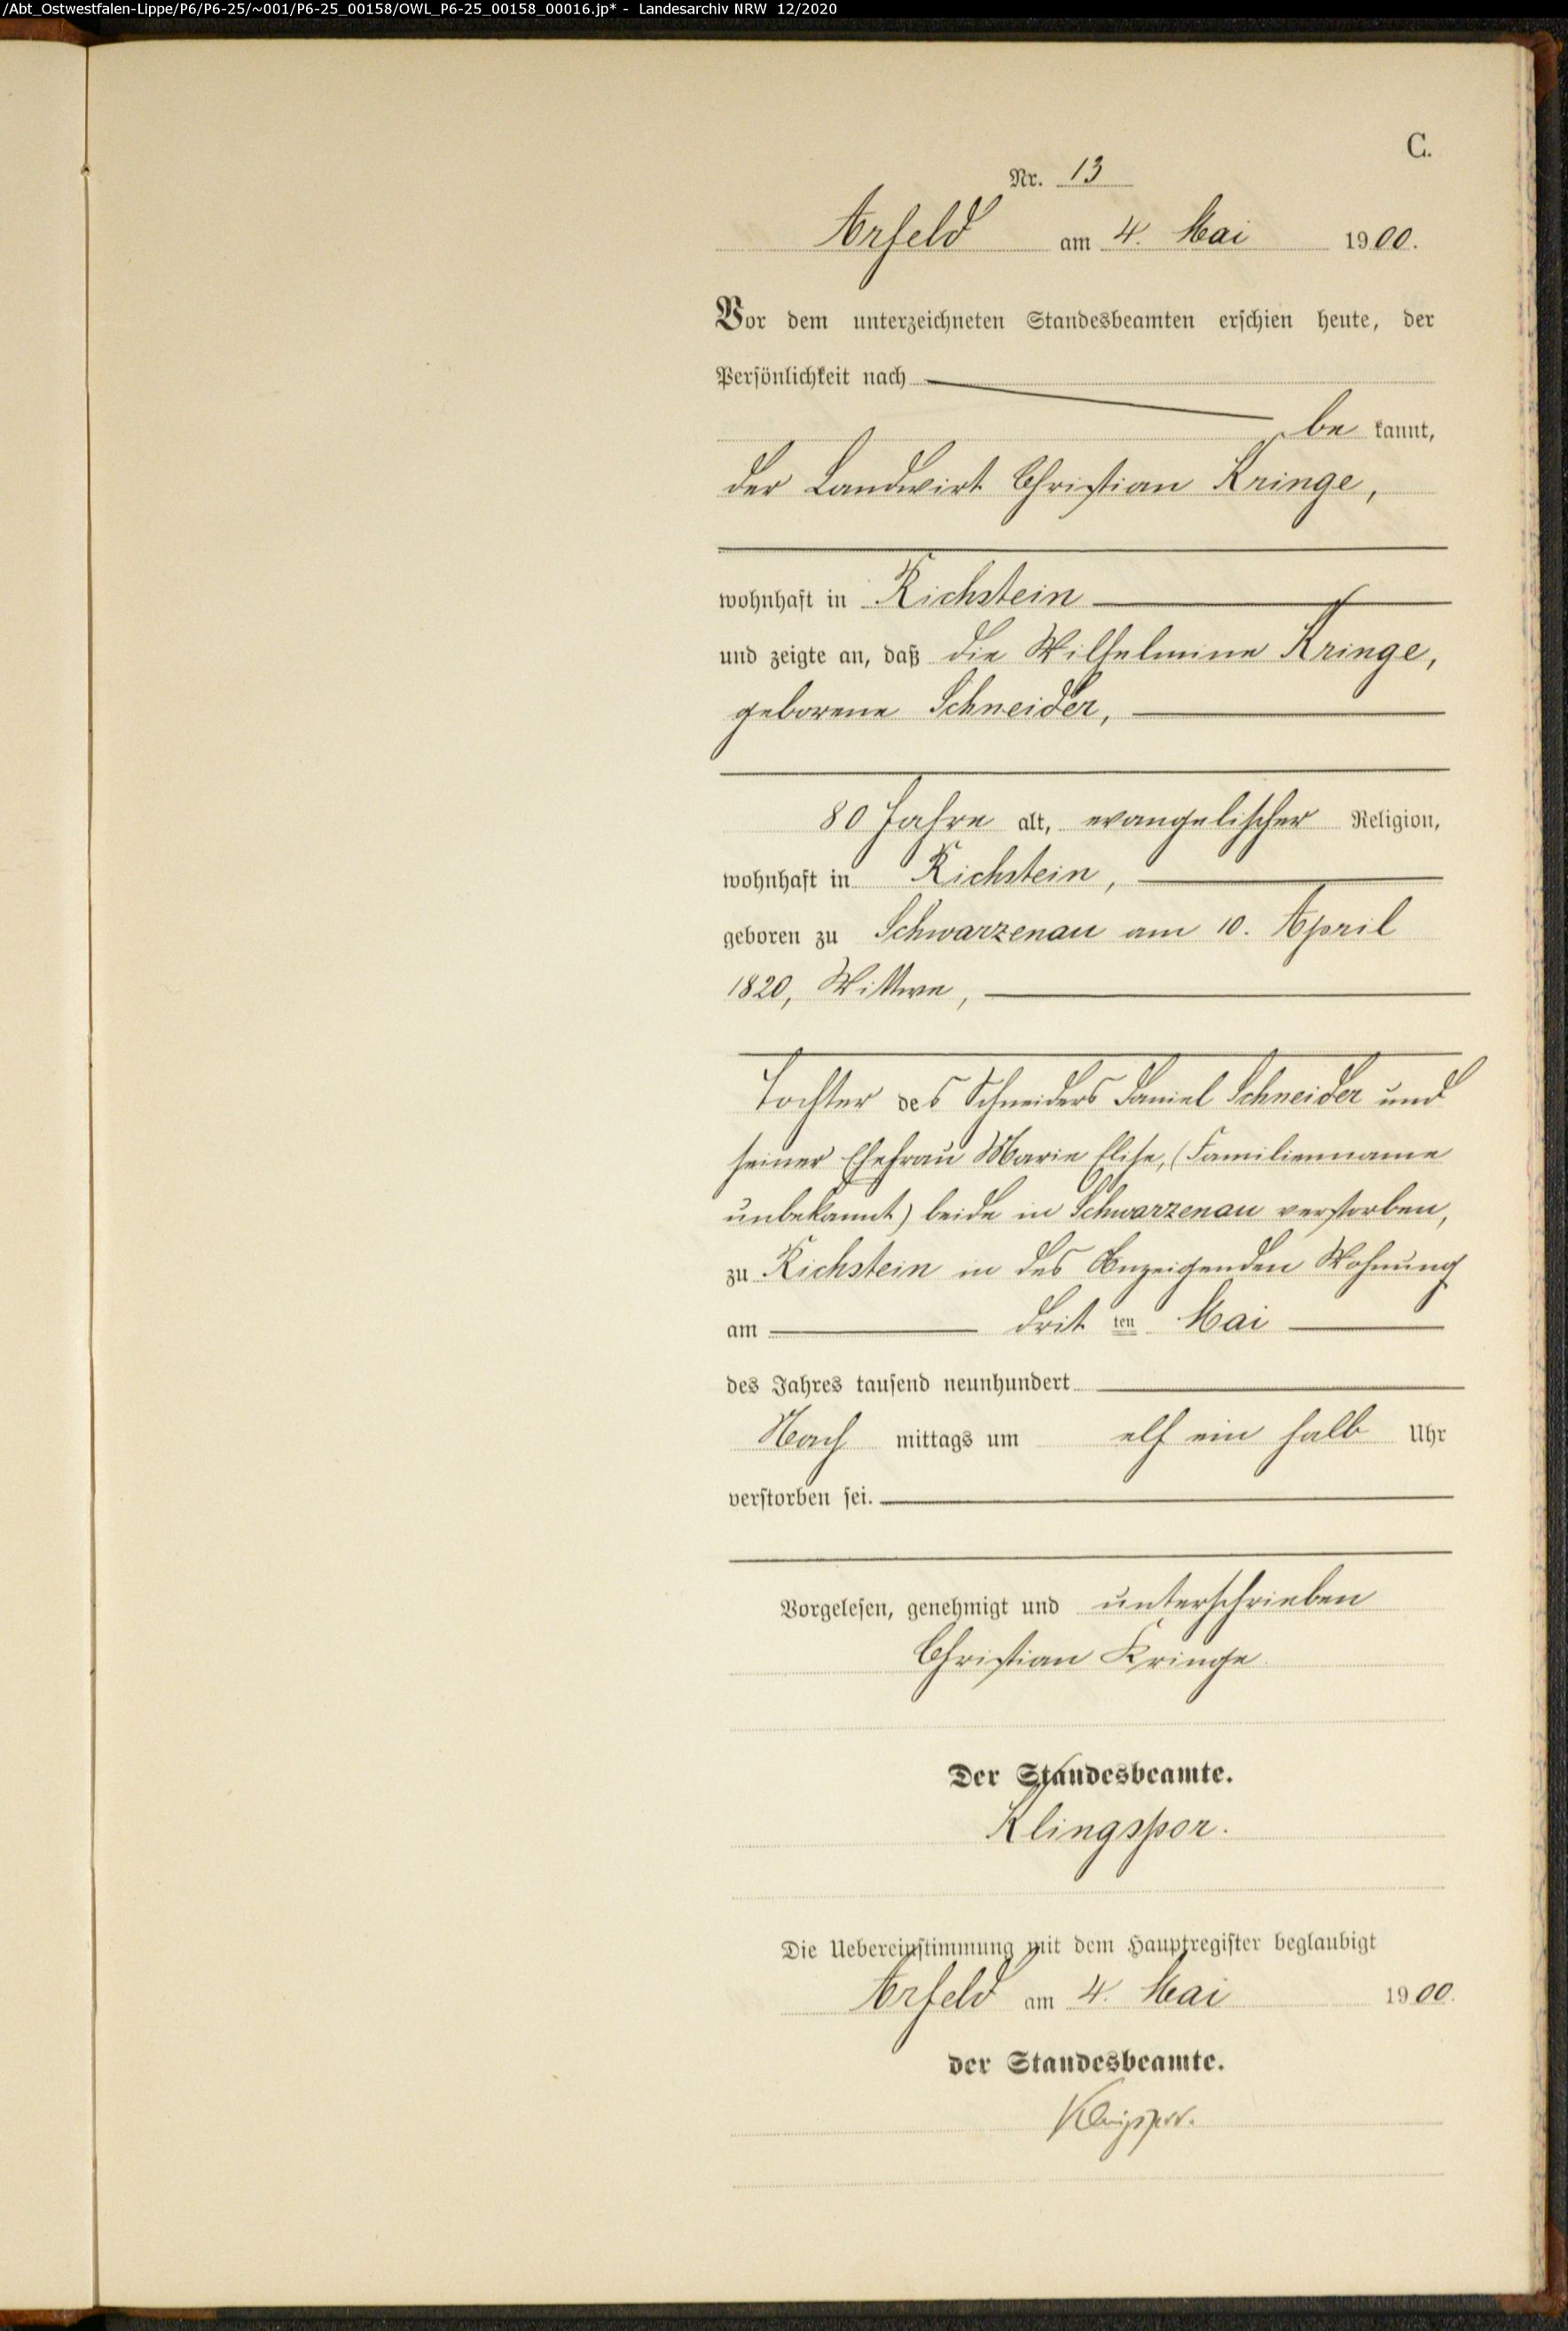 /Abt_Ostwestfalen-Lippe/P6/P6-25/~001/P6-25_00158/OWL_P6-25_00158_00016.jp* - Landesarchiv NRW 12/2020
C.
Nr. 13
Arfeld am 4. Mai 1900.
Vor dem unterzeichneten Standesbeamten erschien heute, der
Persönlichkeit nach
be kannt,
der Landwirt Christian Kringe,
wohnhaft in Richstein
und zeigte an, daß die Wilhelmine Kringe,
geborene Schneider,
80 Jahre alt, evangelischer Religion,
wohnhaft in Richstein,
geboren zu Schwarzenau am 10. April
1820, Wittwe,
Tochter des Schneiders Daniel Schneider und
seiner Ehefrau Marie Elise, (Familienname
unbekannt) beide in Schwarzenau verstorben,
zu Richstein in des Anzeigenden Wohnung
am drit ten Mai
des Jahres tausend neunhundert
Nach mittags um elf ein halb Uhr
verstorben sei.
Vorgelesen, genehmigt und unterschrieben
Christian Kringe.
Der Standesbeamte.
Klingspor.
Die Uebereinstimmung mit dem Hauptregister beglaubigt
Arfeld am 4. Mai 1900.
der Standesbeamte.
Klingspor.